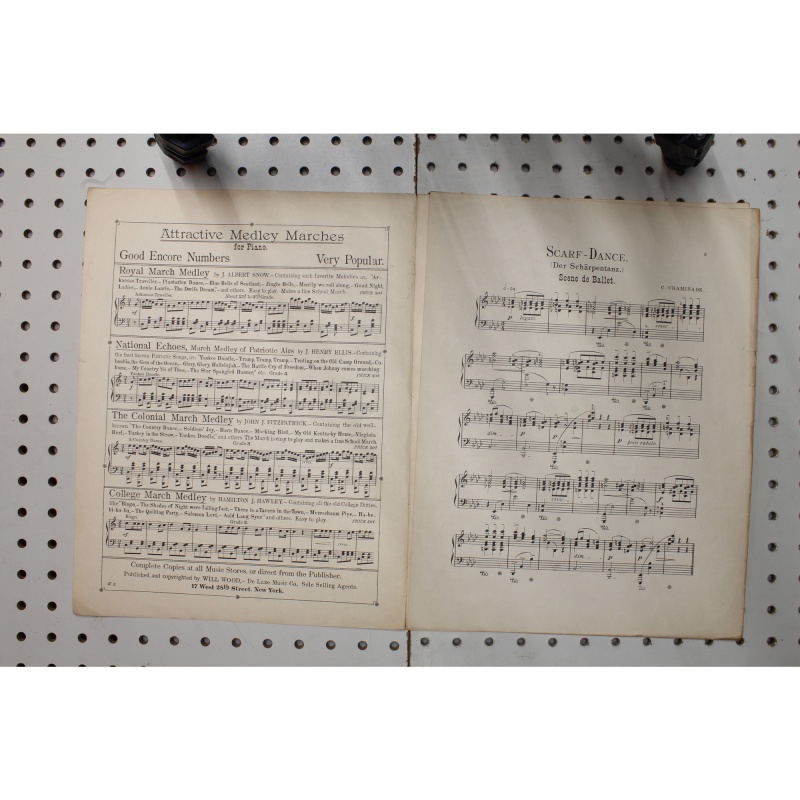 Attractive Medley Marches
for Piano.
Good Encore Numbers Very Popular.
Royal March Medley by J. ALBERT SNOW.—Containing such favorite Melodies as, "Ar-
kansas Traveller.— Plantation Dance,— Blue Bells of Scotland,— Jingle Bells,— Merrily we roll along,— Good Night,
Ladies,— Annie Laurie,— The Devil's Dream",— and others. Easy to play. Makes a fine School March.
Arkansas Traveller. Grade. PRICE 50¢
National Echoes, March Medley of Patriotic Airs by J. HENRY ELLIS.—Containing
the best known Patriotic Songs, as: "Yankee Doodle,— Tramp, Tramp, Tramp.— Tenting on the Old Camp Ground,— Co-
lumbia, the Gem of the Ocean.— Glory, Glory, Hallelujah.— The Battle Cry of Freedom,— When Johnny comes marching
home,— My Country 'tis of Thee,— The Star Spangled Banner," etc. Grade 3.
Yankee Doodle. PRICE 50¢
The Colonial March Medley by JOHN J. FITZPATRICK.— Containing the old well-
known "The Country Dance,— Soldiers' Joy,— Barn Dance,— Mocking Bird,— My Old Kentucky Home,— Virginia
Reel,— Turkey in the Straw,— Yankee Doodle," and others. The March is easy to play and makes a fine School March.
A Country Dance. Grade 3 PRICE 50¢
College March Medley by HAMILTON J. HAWLEY.—Containing all the old College Ditties,
like "Bingo,— The Shades of Night were falling fast,— There is a Tavern in the Town,— Meerschaum Pipe,— Ba-be-
bi-bo-bu,— The Quilting Party,— Solomon Levi,— Auld Lang Syne" and others. Easy to play.
Bingo. Grade 3. PRICE 50¢
Complete Copies at all Music Stores, or direct from the Publisher.
Published and copyrighted by WILL WOOD,— De Luxe Music Co., Sole Selling Agents.
17 West 28th Street. New York.
SCARF-DANCE.
(Der Schärpentanz.)
Scene de Ballet.
C. CHAMINADE
p legato.
cresc.
dim.
p
poco rubato.
dim.
p